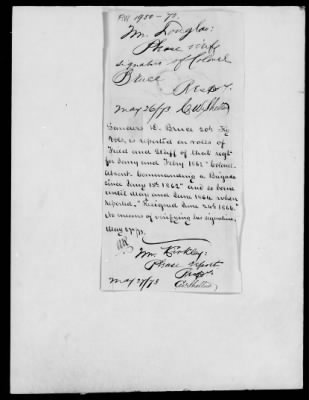 1950-73.
Mr. Douglas:
Please verify
signature of Colonel
Bruce
May 26/73
Sanders D. Bruce 20th Ky
Vols, is reported on rolls of
Field and Staff of that regt
for Jany and Feby 1862 "Colonel
Absent. Commanding a Brigade
since Jany 1st 1862" and so borne
until May and June 1864 when
reported, "Resigned June 24th 1864."
No means of verifying his signature.
May 27/73.
Mr. Kirkley:
Please report
May 27/73